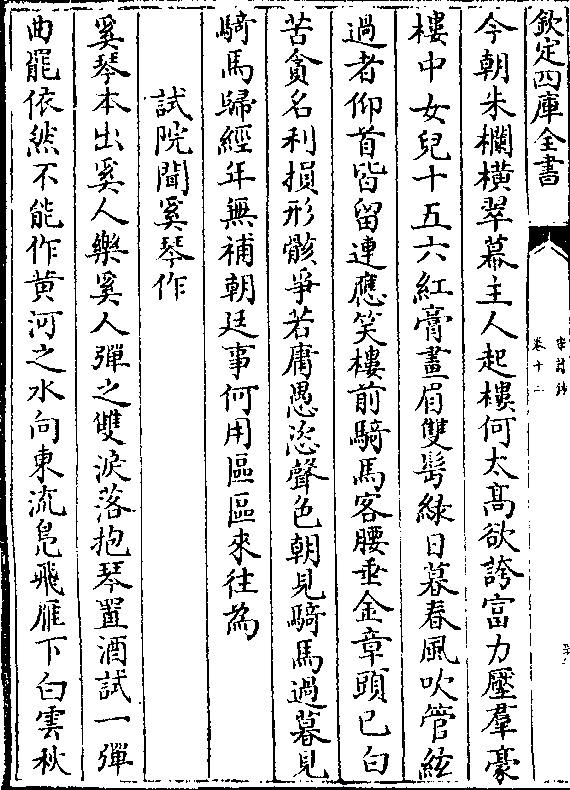 欽定四庫全書
今朝朱欄横翠幕主人起樓何太髙欲誇富力壓羣豪
樓中女兒十五六紅膏畫眉雙髩緑日暮春風吹管絃
過者仰首皆留連應笑樓前騎馬客腰垂金章頭已白
苦貪名利損形骸爭若庸愚恣聲色朝見騎馬過暮見
騎馬歸經年無補朝廷事何用區區來往為
試院聞奚琴作
奚琴本出奚人樂奚人彈之雙淚落抱琴置酒試一彈
曲罷依然不能作黄河之水向東流鳬飛雁下白雲秋
宋詩鈔
卷十二